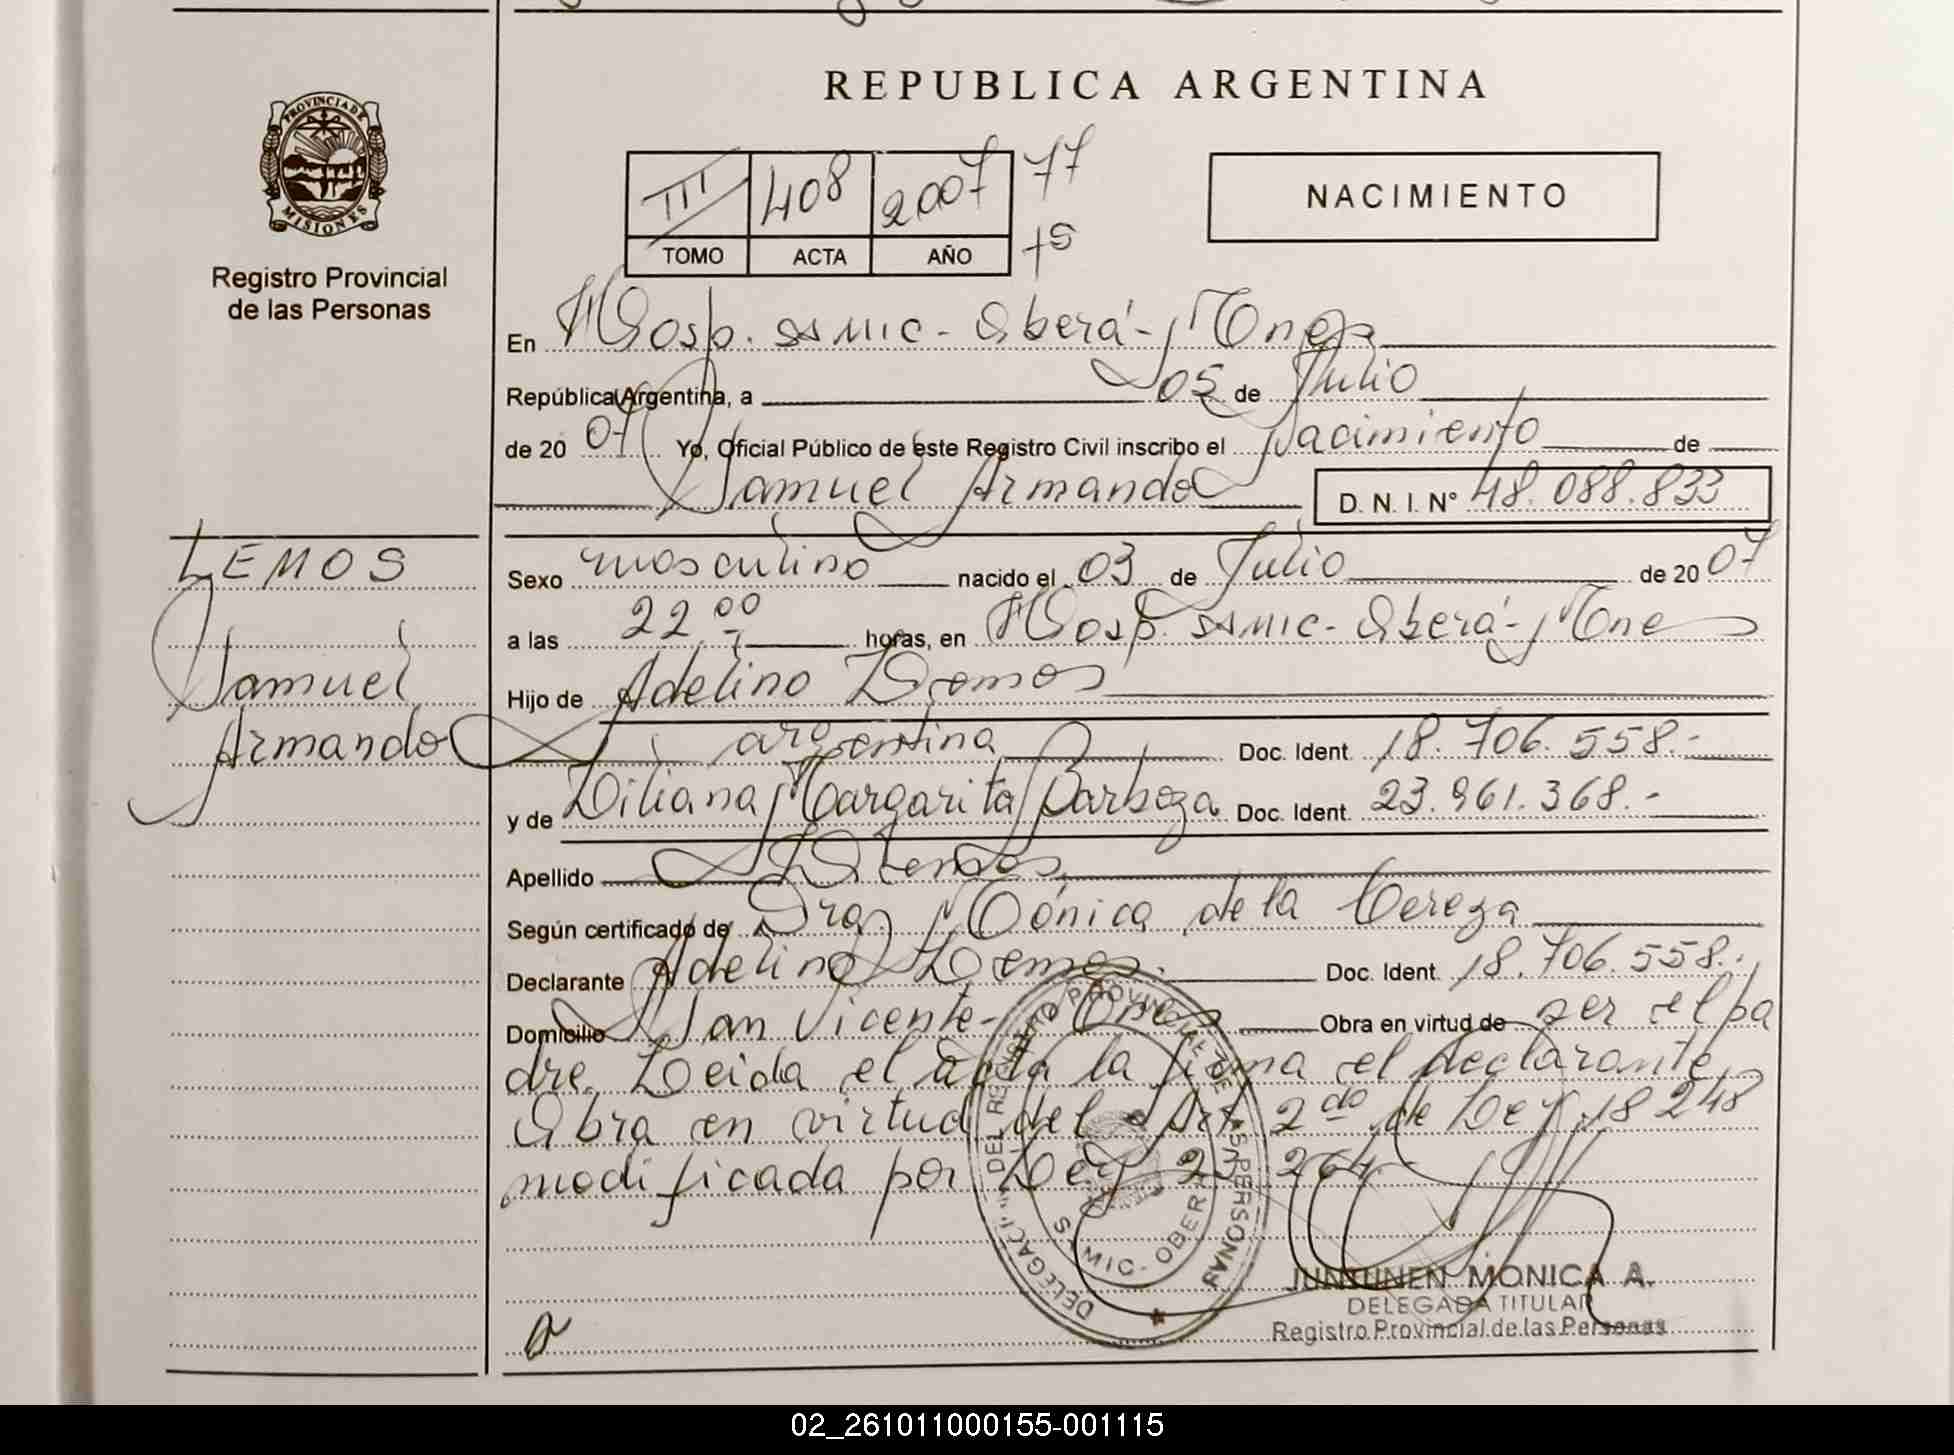 REPUBLICA ARGENTINA
PROVINCIA DE
MISIONES
Registro Provincial
de las Personas
III 408 2007 77
TOMO ACTA AÑO
NACIMIENTO
En Hosp. SAMIC - Oberá - Mnes
República Argentina, a 05 de Julio
de 20 07 Yo, Oficial Público de este Registro Civil inscribo el Nacimiento de
Samuel Armando D. N. I. Nº 48.088.833
LEMOS
Samuel
Armando
Sexo masculino nacido el 03 de Julio de 20 07
a las 22,00 horas, en Hosp. SAMIC - Oberá - Mnes
Hijo de Adelino Lemos
argentina Doc. Ident. 18.706.558.-
y de Liliana Margarita Barboza Doc. Ident. 23.961.368.-
Apellido Lemos
Según certificado de Dra. Mónica de la Cereza
Declarante Adelino Lemos. Doc. Ident. 18.706.558.-
Domicilio San Vicente - Mnes Obra en virtud de ser el pa
dre. Leida el acta la firma el declarante
Obra en virtud del Art 2do de Ley 18248
modificada por Ley 264
DELEGACI DEL REGISTRO PROVINCIAL DE LAS PERSONAS
SAMIC - OBERA
JUNTUNEN MONICA A.
DELEGADA TITULAR
Registro Provincial de las Personas
02_261011000155-001115